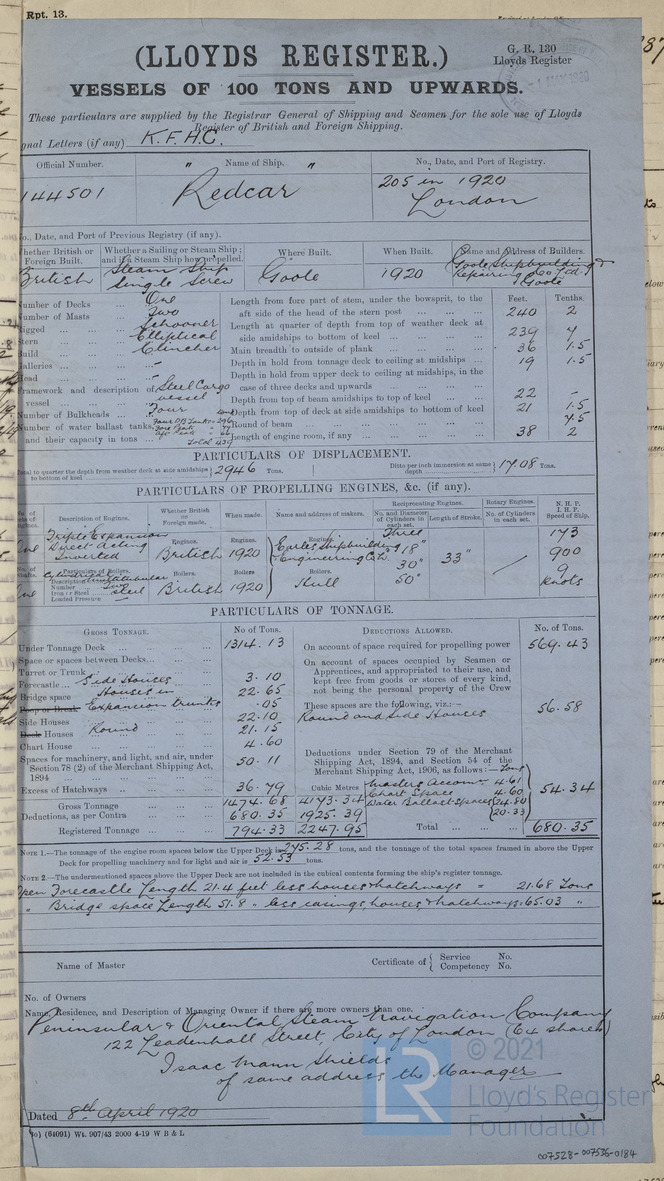 Rpt. 13.
(LLOYDS REGISTER.)
G. R. 130
Lloyds Register
VESSELS OF 100 TONS AND UPWARDS.
These particulars are supplied by the Registrar General of Shipping and Seamen for the sole use of Lloyds
Register of British and Foreign Shipping.
gnal Letters (if any) K.F.H.C.
Official Number. " Name of Ship. " No., Date, and Port of Registry.
144501 Redcar 205 in 1920
London
o., Date, and Port of Previous Registry (if any).
hether British or Foreign Built. Whether a Sailing or Steam Ship; and if a Steam Ship how propelled. Where Built. When Built. Name and Address of Builders.
British Steam Ship Single Screw Goole 1920 Goole Shipbuilding & Repairing Co Ltd. Goole
Number of Decks ... One
Number of Masts ... Two
Rigged ... Schooner
Stern ... Elliptical
Build ... Clincher
Galleries ... -
Head ... -
Framework and description of vessel ... Steel Cargo vessel
Number of Bulkheads ... Four
Number of water ballast tanks, and their capacity in tons ... Total 439
Feet. Tenths.
Length from fore part of stem, under the bowsprit, to the aft side of the head of the stern post ... 240 2
Length at quarter of depth from top of weather deck at side amidships to bottom of keel ... 239 4
Main breadth to outside of plank ... 36 1.5
Depth in hold from tonnage deck to ceiling at midships ... 19 1.5
Depth in hold from upper deck to ceiling at midships, in the case of three decks and upwards ...
Depth from top of beam amidships to top of keel ... 22 -
Depth from top of deck at side amidships to bottom of keel 21 1.5
Round of beam ... 7.5
Length of engine room, if any ... 38 2
PARTICULARS OF DISPLACEMENT.
Total to quarter the depth from weather deck at side amidships to bottom of keel } 2946 Tons. Ditto per inch immersion at same depth } 17.08 Tons.
PARTICULARS OF PROPELLING ENGINES, &c. (if any).
No. of sets of Engines. Description of Engines. Whether British or Foreign made. When made. Name and address of makers. Reciprocating Engines. No. and Diameter of Cylinders in each set. Length of Stroke. Rotary Engines. No. of Cylinders in each set. N. H. P. I. H. P. Speed of Ship.
Triple Expansion Direct Acting Inverted Engines. British Engines. 1920 Engines. Earles Shipbuilding & Engineering Co Ld. Three 18" 30" 50" 33" 173 900 9 Knots
No. of Shafts. Description Cylindrical Multitubular Number Two Iron or Steel Steel Loaded Pressure - Boilers. British Boilers 1920 Boilers. Hull
PARTICULARS OF TONNAGE.
GROSS TONNAGE. No of Tons. DEDUCTIONS ALLOWED. No. of Tons.
Under Tonnage Deck ... 1314.13
Space or spaces between Decks ...
Turret or Trunk
Forecastle Side Houses ... 3.10
Bridge space Houses in ... 22.65
Poop or Break Expansion trunks .05
Side Houses ... 22.10
Deck Houses Round ... 21.15
Chart House ... 4.60
Spaces for machinery, and light, and air, under Section 78 (2) of the Merchant Shipping Act, 1894 ... 50.11
Excess of Hatchways ... 36.79
Gross Tonnage ... 1474.68 4173.34
Deductions, as per Contra ... 680.35 1925.39
Registered Tonnage ... 794.33 2247.95
Cubic Metres
On account of space required for propelling power 569.43
On account of spaces occupied by Seamen or Apprentices, and appropriated to their use, and kept free from goods or stores of every kind, not being the personal property of the Crew
These spaces are the following, viz.:— 56.58
Round and Side Houses
Deductions under Section 79 of the Merchant Shipping Act, 1894, and Section 54 of the Merchant Shipping Act, 1906, as follows:— Tons
Masters Accomn 4.61
Chart Space 4.60
Water Ballast Spaces {24.80 {20.33 } 54.34
Total ... 680.35
NOTE 1.—The tonnage of the engine room spaces below the Upper Deck is 245.28 tons, and the tonnage of the total spaces framed in above the Upper
Deck for propelling machinery and for light and air is 52.53 tons.
NOTE 2.—The undermentioned spaces above the Upper Deck are not included in the cubical contents forming the ship's register tonnage.
Open Forecastle Length 21.4 feet less houses & hatchways = 21.68 Tons
" Bridge space Length 51.8 " less casings, houses & hatchways: 65.03 "
Name of Master Certificate of { Service No.
Competency No.
No. of Owners
Name, Residence, and Description of Managing Owner if there are more owners than one.
Peninsular & Oriental Steam Navigation Company
122 Leadenhall Street, City of London (64 shares)
Isaac Mann Shields
of same address the Manager
Dated 8th April 1920
(64091) Wt. 907/43 2000 4-19 W B & L
© 2021
LR
Lloyd's Register
Foundation
007528-007536-0184